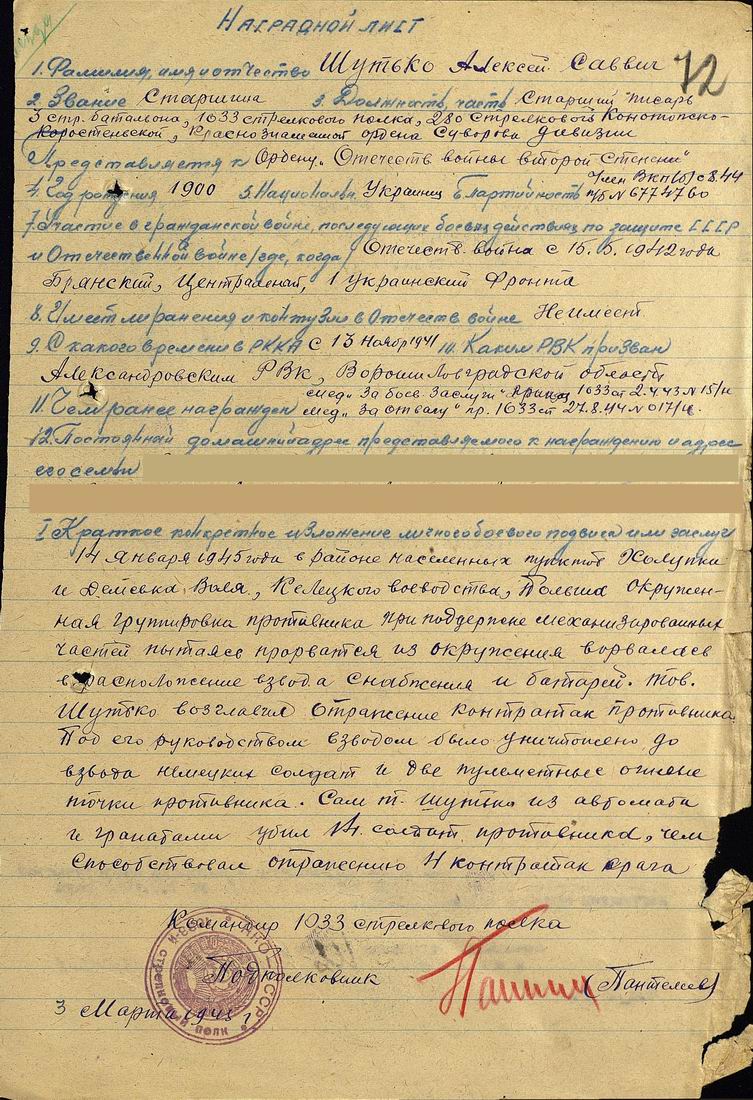 Наградной лист
1. Фамилия, имя и отчество Шутько Алексей Саввич 12
2. Звание Старшина 3. Должность, часть Старший писарь
3 стр. батальона, 1033 стрелкового полка, 280 стрелковой Конотопско-
Коростенской, Краснознаменной ордена Суворова дивизии
Представляется к Ордену „Отечеств войны второй степени"
4. Год рождения 1900 5. Национальн. Украинец 6 партийность член ВКП(б) с 8.44
п/б № 6774760
7. Участие в гражданской войне, последующих боевых действиях по защите СССР
и Отечественной войне/где, когда/ Отечеств. война с 15.5.1942 года
Брянский, Центральный, 1 Украинский Фронта
8. Имеет ли ранения и контузии в Отечеств войне Не имеет.
9. С какого времени в РККА с 13 ноября 1941 10. Каким РВК призван
Александровским РВК, Ворошиловградской области
11. Чем ранее награжден мед. „За боев. Заслуги" приказ 1033 от 2.4.43 № 15/н
мед. „За отвагу" пр. 1033 от 27.8.44 № 017/н.
12. Постоянный домашний адрес представляемого к награждению и адрес
его семьи
I Краткое конкретное изложение личного боевого подвига или заслуг
14 Января 1945 года в районе населенных пунктов Холупки
и Демевка Воля, Келецкого воеводства, Польша окружен-
ная группировка противника при поддержке механизированных
частей пытаясь прорватся из окружения ворвалась
в расположение взвода снабжения и батарей. Тов.
Шутько возглавил отражение контратак противника
Под его руководством взводом было уничтожено до
взвода немецких солдат и две пулеметные огневые
точки противника. Сам т. Шутько из автомата
и гранатами убил 14 солдат противника, чем
способствовал отражению 4 контратак врага
Командир 1033 стрелкового полка
Подполковник (Пантелеев)
3 Марта 1945 г